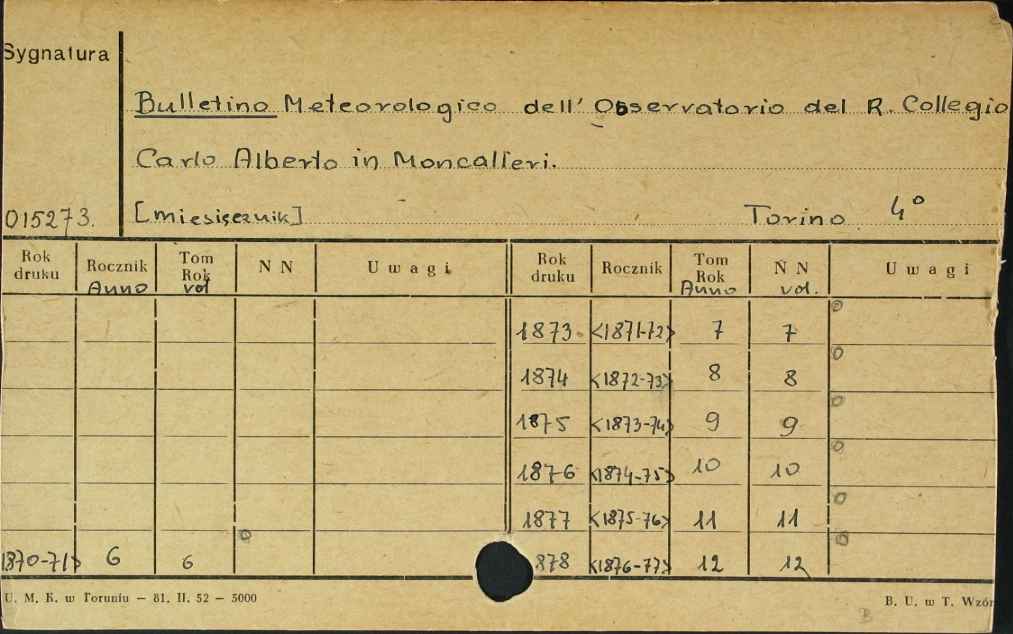 Sygnatura
Bulletino Meteorologico dell' Osservatorio del R. Collegio
Carlo Alberto in Moncalieri.
015273. [miesięcznik] Torino 4°
Rok druku Rocznik Tom Rok N N Uwagi Rok druku Rocznik Tom Rok N N Uwagi
Anno vol Anno vol.
1873 <1871-72> 7 7
1874 <1872-73> 8 8
1875 <1873-74> 9 9
1876 <1874-75> 10 10
1877 <1875-76> 11 11
1870-71> 6 6 878 <1876-77> 12 12
U. M. K. w Toruniu — 81. II. 52 — 5000 B. U. w T. Wzór
B